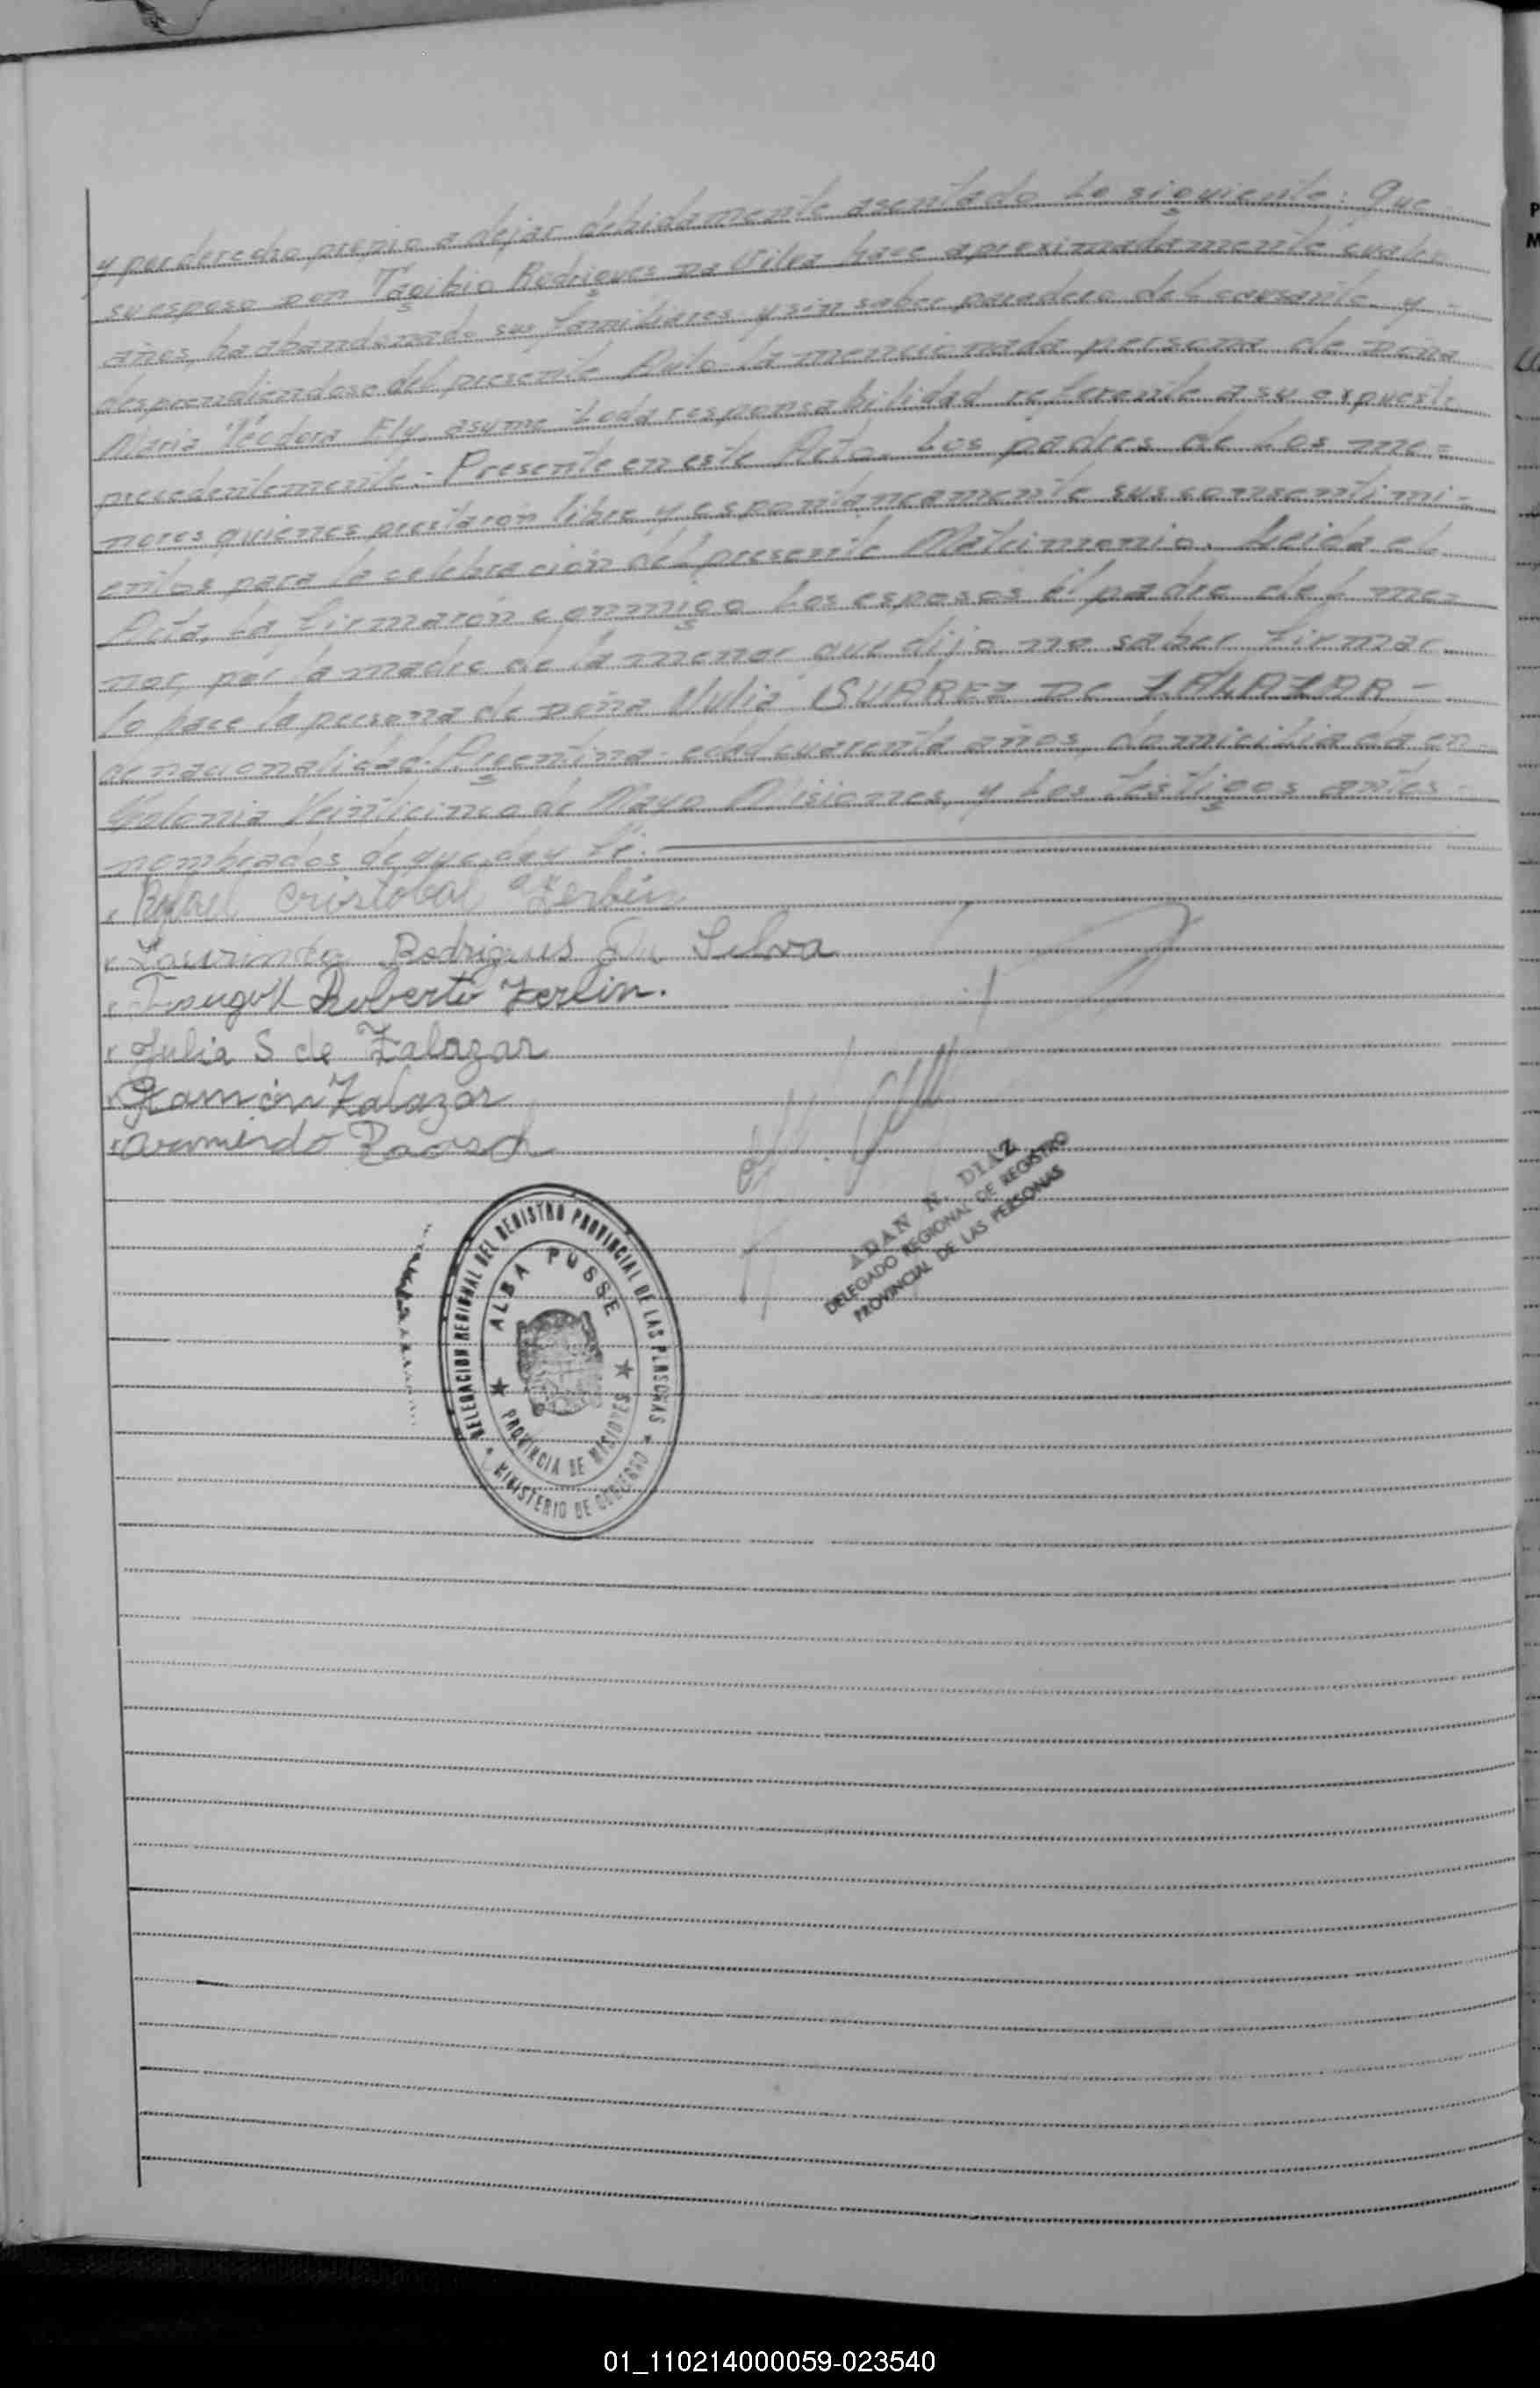 y por derecho propio a dejar debidamente asentado lo siguiente: Que
su esposo Don Rodrigues Da Silva hace aproximadamente
años, ha abandonado sus familiares y sin saber paradero del causante y -
desprendiendose del presente Auto la mencionada persona de Doña
Maria Teodora Ely, asume toda responsabilidad referente a su expuesto
precedentemente.- Presente en este Acto. Los padres de los me=
nores quienes prestaron libre y espontaneamente sus consentimi-
entos para la celebración del presente Matrimonio. Leida el
Acta, la firmarón conmigo los esposos el padre del me-
nor, por la madre de la menor que dijo no saber firmar
lo hace la persona de Doña Julia SUAREZ DE ZALAZAR -
de nacionalidad Argentina - edad cuarenta años, domiciliada en
Colonia Veinticinco de Mayo Misiones, y los testigos antes
nombrados de que doy fé.
Rafael Cristobal Zerbin
Rodrigues Da Silva
Roberto Zerbin.
Julia S de Zalazar
Ramón Zalazar
Armindo
ADAN N. DIAZ
DELEGADO REGIONAL DE REGISTRO
PROVINCIAL DE LAS PERSONAS
DELEGACION REGIONAL DEL REGISTRO PROVINCIAL DE LAS PERSONAS
ALBA POSSE
PROVINCIA DE MISIONES
MINISTERIO DE GOBIERNO
P
M
01_110214000059-023540